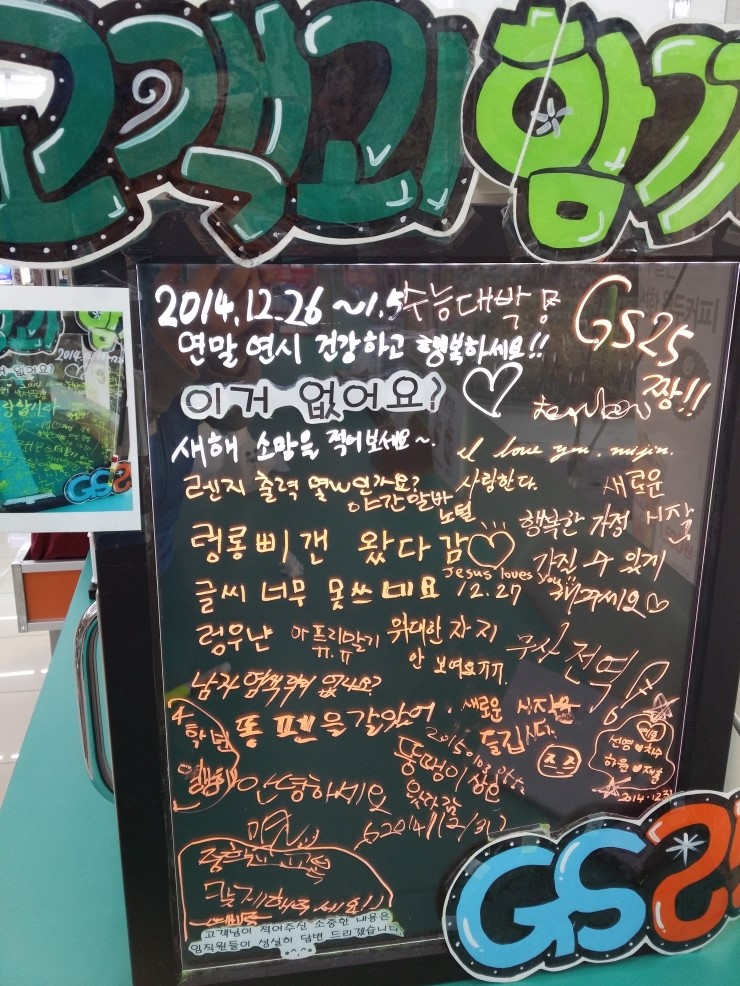 고객과 함께
2014.12.26 ~ 1.5 수능대박
GS25
짱!!
연말 연시 건강하고 행복하세요!!
이거 없어요?
새해 소망을 적어보세요~.
I love you. mijin.
렌지 출력 몇W인가요?
사랑한다.
새로운
시작
렁롱삐갠 왔다감
행복한 가정
가질 수 있게
해주세요♡
Jesus loves you!!
12.27
글씨 너무 못쓰네요
렁우난
아푸리말기
ㅠ.ㅠ
위대한 자지
안 보여요ㅠㅠ.
무사전역!
남자 없나요?
똥 펜을 갈았어.
새로운 시작을
즐깁시다.
4학년
안녕하세요
뚱땡이 삼촌
왔다감
2014.12.31
2014/12/31
하세요!!
고객님이 적어주신 소중한 내용은
임직원들이 성실히 답변 드리겠습니다
GS25